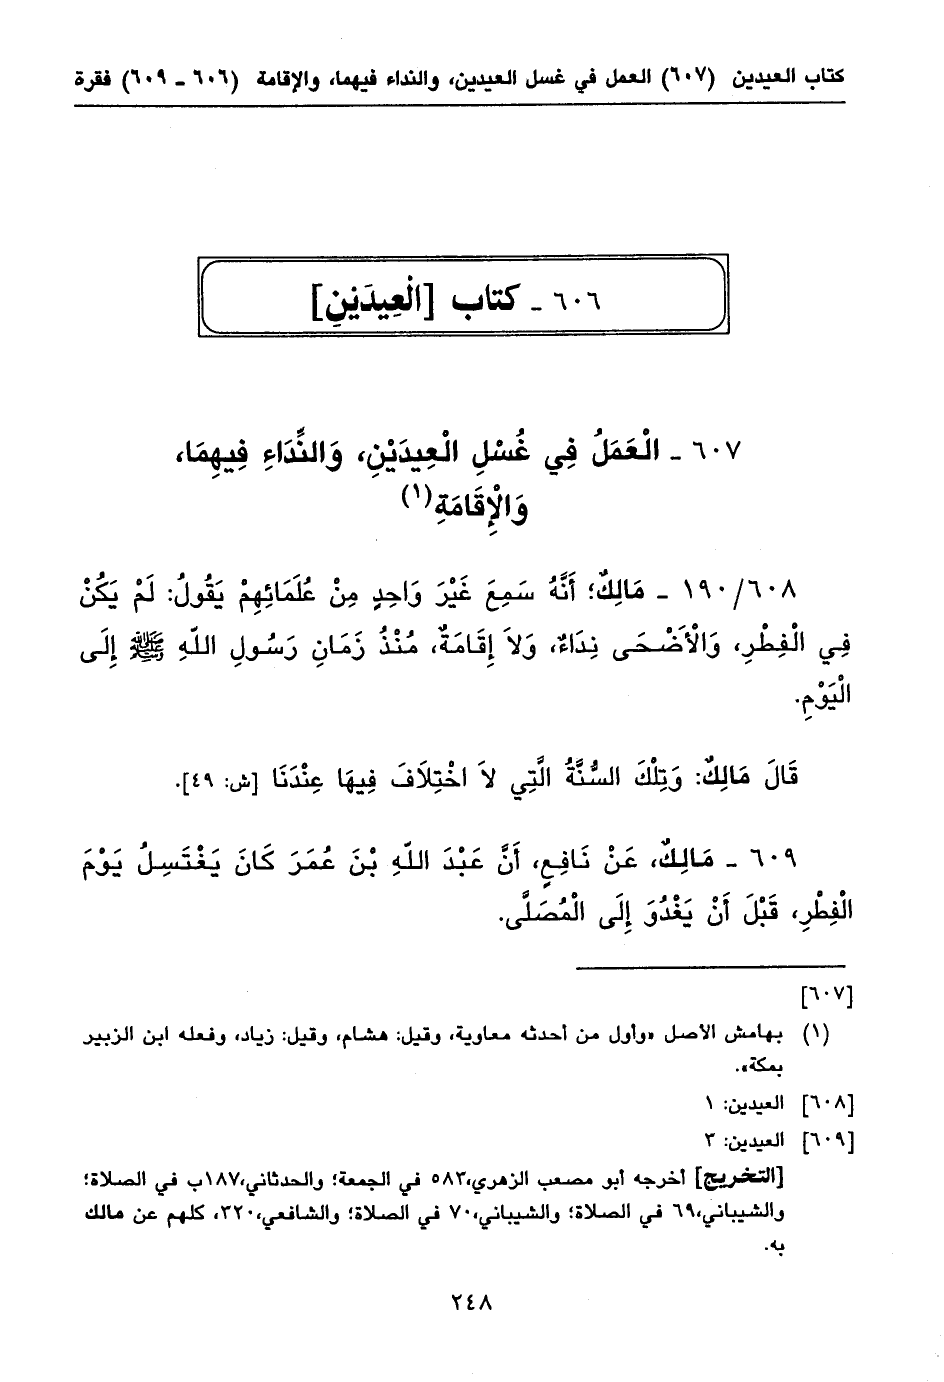 كتاب العيدين (٦٠٧) العمل في غسل العيدين، والنداء فيهما، والإقامة (٦٠٦ - ٦٠٩) فقرة
٦٠٦ - كتاب [الْعِيدَيْنِ]
٦٠٧ - الْعَمَلُ فِي غُسْلِ الْعِيدَيْنِ، وَالنِّدَاءِ فِيهِمَا،
وَالْإِقَامَةِ(١)
١٩٠/٦٠٨ - مَالِكٌ؛ أَنَّهُ سَمِعَ غَيْرَ وَاحِدٍ مِنْ عُلَمَائِهِمْ يَقُولُ: لَمْ يَكُنْ
فِي الْفِطْرِ، وَالْأَضْحَى نِدَاءٌ، وَلاَ إِقَامَةٌ، مُنْذُ زَمَانِ رَسُولِ اللّهِ ﷺ إِلَى
الْيَوْمِ.
قَالَ مَالِكٌ: وَتِلْكَ السُّنَّةُ الَّتِي لاَ اخْتِلاَفَ فِيهَا عِنْدَنَا [ش: ٤٩].
٦٠٩ - مَالِكٌ، عَنْ نَافِعٍ، أَنَّ عَبْدَ اللّهِ بْنَ عُمَرَ كَانَ يَغْتَسِلُ يَوْمَ
الْفِطْرِ، قَبْلَ أَنْ يَغْدُوَ إِلَى الْمُصَلَّى.
[٦٠٧]
(١) بهامش الأصل «وأول من أحدثه معاوية، وقيل: هشام، وقيل: زياد، وفعله ابن الزبير
بمكة».
[٦٠٨] العيدين: ١
[٦٠٩] العيدين: ٣
[التخريج] أخرجه أبو مصعب الزهري،٥٨٣ في الجمعة؛ والحدثاني،١٨٧ب في الصلاة؛
والشيباني،٦٩ في الصلاة؛ والشيباني،٧٠ في الصلاة؛ والشافعي،٣٢٠، كلهم عن مالك
به.
٢٤٨